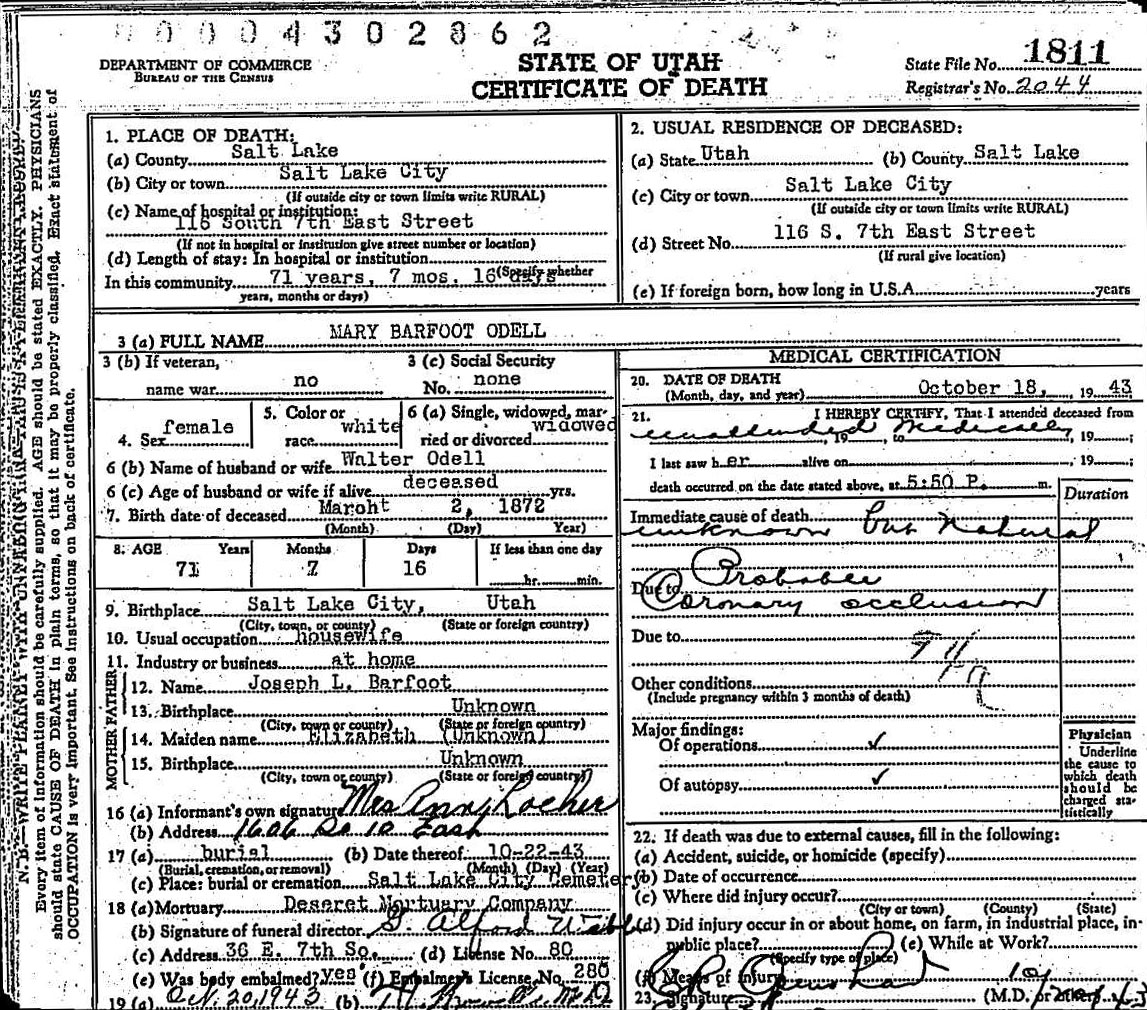 00004302862
DEPARTMENT OF COMMERCE
BUREAU OF THE CENSUS
STATE OF UTAH
CERTIFICATE OF DEATH
State File No. 1811
Registrar's No. 2044
N. B.—WRITE PLAINLY WITH UNFADING INK—THIS IS A PERMANENT RECORD.
Every item of information should be carefully supplied. AGE should be stated EXACTLY. PHYSICIANS
should state CAUSE OF DEATH in plain terms, so that it may be properly classified. Exact statement of
OCCUPATION is very important. See instructions on back of certificate.
1. PLACE OF DEATH:
(a) County Salt Lake
(b) City or town Salt Lake City
(If outside city or town limits write RURAL)
(c) Name of hospital or institution:
116 South 7th East Street
(If not in hospital or institution give street number or location)
(d) Length of stay: In hospital or institution
In this community 71 years, 7 mos. 16 days (Specify whether
years, months or days)
2. USUAL RESIDENCE OF DECEASED:
(a) State Utah (b) County Salt Lake
(c) City or town Salt Lake City
(If outside city or town limits write RURAL)
(d) Street No. 116 S. 7th East Street
(If rural give location)
(e) If foreign born, how long in U.S.A. years
3 (a) FULL NAME MARY BARFOOT ODELL
3 (b) If veteran, 3 (c) Social Security
name war no No. none
4. Sex female 5. Color or race white 6 (a) Single, widowed, married or divorced widowed
6 (b) Name of husband or wife Walter Odell
6 (c) Age of husband or wife if alive deceased yrs.
7. Birth date of deceased Maroht 2, 1872
(Month) (Day) Year)
8. AGE Years Months Days If less than one day
71 7 16 hr. min.
9. Birthplace Salt Lake City, Utah
(City, town, or county) (State or foreign country)
10. Usual occupation housewife
11. Industry or business at home
FATHER
12. Name Joseph L. Barfoot
13. Birthplace Unknown
(City, town or county) (State or foreign country)
MOTHER
14. Maiden name Elizabeth (Unknown)
15. Birthplace Unknown
(City, town or county) (State or foreign country)
16 (a) Informant's own signature Mrs Anny Locher
(b) Address 1606 So 10 East
17 (a) burial (b) Date thereof 10-22-43
(Burial, cremation, or removal) (Month) (Day) (Year)
(c) Place: burial or cremation Salt Lake City Cemetery
18 (a) Mortuary Deseret Mortuary Company
(b) Signature of funeral director
(c) Address 36 E. 7th So. (d) License No. 80
(e) Was body embalmed? yes (f) Embalmer's License No. 280
19 (a) Oct. 20, 1943 (b)
MEDICAL CERTIFICATION
20. DATE OF DEATH
(Month, day, and year) October 18, 19 43
21. I HEREBY CERTIFY, That I attended deceased from
unattended Medically, 19, to, 19;
I last saw her alive on, 19;
death occurred on the date stated above, at 5:50 P. m.
Duration
Immediate cause of death
unknown but Natural
Probable
Due to Coronary occlusion
Due to
Other conditions
(Include pregnancy within 3 months of death)
Major findings:
Of operations ✓
Of autopsy ✓
Physician
Underline
the cause to
which death
should be
charged sta-
tistically
22. If death was due to external causes, fill in the following:
(a) Accident, suicide, or homicide (specify)
(b) Date of occurrence
(c) Where did injury occur?
(City or town) (County) (State)
(d) Did injury occur in or about home, on farm, in industrial place, in
public place? (e) While at Work?
(Specify type of place)
(f) Means of injury
23. Signature (M.D. or other)